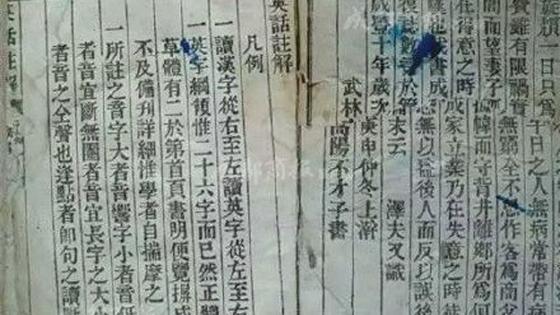 一日只為
午日之人無病常帶有病
費雖有限
無窮全不思作客為商
間而望妻子
幃而守青井離鄉所為何
在得意之時
成家立業乃在失意之時徒
也 書成
志無以益後人而反以誤後
復誌數語於篇末云 澤夫又識
咸豐十年歲次庚申仲冬上澣
武林高陽不才子書
英話註解
凡例
一讀漢字從右至左讀英字從左至右
一英字綱領惟二十六字而已然正體
草體有二於第首頁書明便覽摒成
不及備刊詳細惟學者自揣摩之
一所註之音字大者音響字小者音低
者音宜斷無圈者音宜長字之大小
者音之仝聲也逢點者即句之讀斷
英話註解